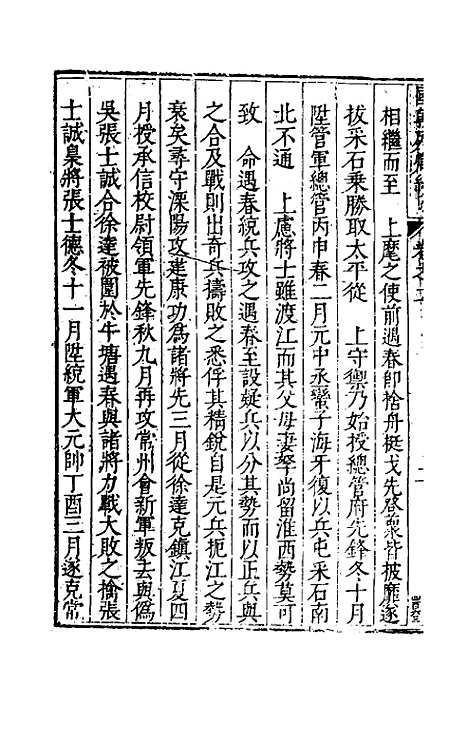 相繼而至　上麾之使前遇春卽捨舟挺戈先登衆皆披靡遂
拔采石乘勝取太平從　上守禦乃始授總管府先鋒冬十月
陞管軍總管丙申春二月元中丞蠻子海牙復以兵屯采石南
北不通　上慮將士雖渡江而其父母妻孥尚留淮西勢莫可
致　命遇春統兵攻之遇春至設疑兵以分其勢而以正兵與
之合及戰則出奇兵擣敗之悉俘其精銳自是元兵扼江之勢
衰矣尋守溧陽攻建康功爲諸將先三月從徐達克鎮江夏四
月授承信校尉領軍先鋒秋九月再攻常州會新軍叛去與僞
吳張士誠合徐達被圍於牛塘遇春與諸將力戰大敗之擒張
士誠梟將張士德冬十一月陞統軍大元帥丁酉三月遂克常